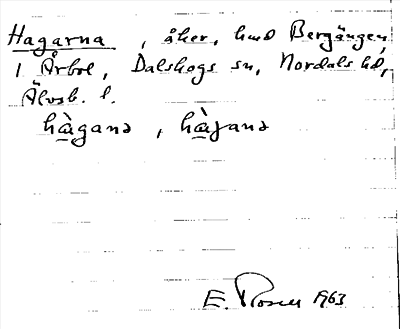 Hagarna, åker, hmd Bergängen,
1 Årbol, Dalskogs sn, Nordals hd,
Älvsb. l.
hàganə, hàganə
E. Rosell 1963